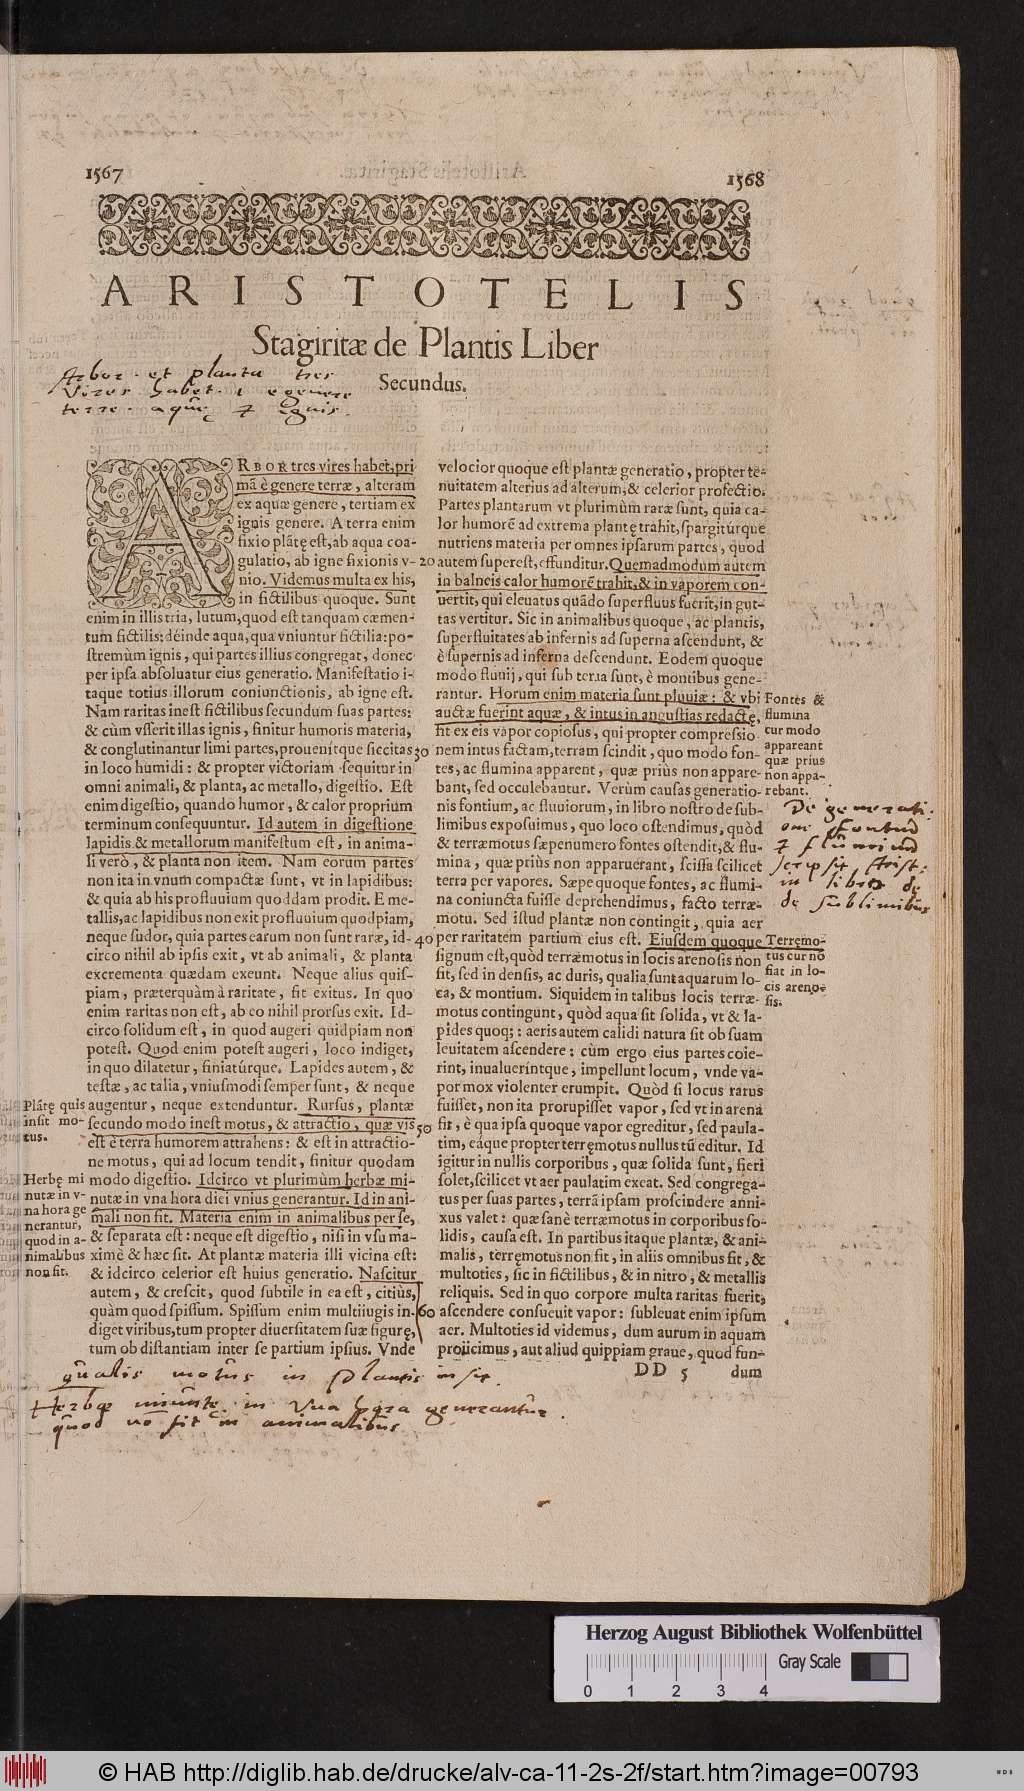 1567
1568
ARISTOTELIS
Stagiritæ de Plantis Liber
Secundus.
Arbor et planta tres
vires habet. 1 e genere
terre. aquę & ignis.
ARBOR tres vires habet, pri
mã è genere terræ, alteram
ex aquæ genere, tertiam ex
ignis genere. A terra enim
fixio plãtę est, ab aqua coa-
gulatio, ab igne fixionis v-
nio. Videmus multa ex his,
in fictilibus quoque. Sunt
enim in illis tria, lutum, quod est tanquam cæmen-
tum fictilis: déinde aqua, qua vniuntur fictilia: po-
stremùm ignis, qui partes illius congregat, donec
per ipsa absoluatur eius generatio. Manifestatio i-
taque totius illorum coniunctionis, ab igne est.
Nam raritas inest fictilibus secundum suas partes:
& cùm vsserit illas ignis, finitur humoris materia,
& conglutinantur limi partes, prouenítque siccitas
in loco humidi: & propter victoriam sequitur in
omni animali, & planta, ac metallo, digestio. Est
enim digestio, quando humor, & calor proprium
terminum consequuntur. Id autem in digestione
lapidis & metallorum manifestum est, in anima-
li verò, & planta non item. Nam eorum partes
non ita in vnum compactæ sunt, vt in lapidibus:
& quia ab his profluuium quoddam prodit. E me-
tallis, ac lapidibus non exit profluuium quodpiam,
neque sudor, quia partes earum non sunt raræ, id-
circo nihil ab ipsis exit, vt ab animali, & planta
excrementa quædam exeunt. Neque alius quis-
piam, præterquàm à raritate, fit exitus. In quo
enim raritas non est, ab eo nihil prorsus exit. Id-
circo solidum est, in quod augeri quidpiam non
potest. Quod enim potest augeri, loco indiget,
in quo dilatetur, finiatúrque. Lapides autem, &
testæ, ac talia, vniusmodi semper sunt, & neque
augentur, neque extenduntur. Rursus, plantæ
secundo modo inest motus, & attractio, quæ vis
est è terra humorem attrahens: & est in attractio-
ne motus, qui ad locum tendit, finitur quodam
modo digestio. Idcirco vt plurimùm herbæ mi-
nutæ in vna hora diei vnius generantur. Id in ani-
mali non fit. Materia enim in animalibus per se,
& separata est: neque est digestio, nisi in vsu ma-
ximè & hæc fit. At plantæ materia illi vicina est:
& idcirco celerior est huius generatio. Nascitur
autem, & crescit, quod subtile in ea est, citiùs,
quàm quod spissum. Spissum enim multiiugis in-
diget viribus, tum propter diuersitatem suæ figurę,
tum ob distantiam inter se partium ipsius. Vnde
Plãtę quis
insit mo-
tus.
Herbę mi
nutæ in v-
na hora ge
nerantur,
quod in a-
nimalibus
non fit.
20
30
40
50
60
velocior quoque est plantæ generatio, propter te-
nuitatem alterius ad alterum, & celerior profectio.
Partes plantarum vt plurimùm raræ sunt, quia ca-
lor humorẽ ad extrema plantę trahit, spargitúrque
nutriens materia per omnes ipsarum partes, quod
autem superest, effunditur. Quemadmodum autem
in balneis calor humorẽ trahit, & in vaporem con-
uertit, qui eleuatus quãdo superfluus fuerit, in gut-
tas vertitur. Sic in animalibus quoque, ac plantis,
superfluitates ab infernis ad superna ascendunt, &
è supernis ad inferna descendunt. Eodem quoque
modo fluuij, qui sub terra sunt, è montibus gene-
rantur. Horum enim materia sunt pluuiæ: & vbi
auctæ fuerint aquæ, & intus in angustias redactę,
fit ex eis vapor copiosus, qui propter compressio-
nem intus factam, terram scindit, quo modo fon-
tes, ac flumina apparent, quæ priùs non appare-
bant, sed occulebantur. Verùm causas generatio-
nis fontium, ac fluuiorum, in libro nostro de sub-
limibus exposuimus, quo loco ostendimus, quòd
& terræmotus sæpenumero fontes ostendit, & flu-
mina, quæ priùs non apparuerant, scissa scilicet
terra per vapores. Sæpe quoque fontes, ac flumi-
na coniuncta fuisse deprehendimus, facto terræ-
motu. Sed istud plantæ non contingit, quia aer
per raritatem partium eius est. Eiusdem quoque
signum est, quòd terræmotus in locis arenosis non
fit, sed in densis, ac duris, qualia sunt aquarum lo-
ca, & montium. Siquidem in talibus locis terræ-
motus contingunt, quòd aqua sit solida, vt & la-
pides quoq;: aeris autem calidi natura sit ob suam
leuitatem ascendere: cùm ergo eius partes coie-
rint, inualuerintque, impellunt locum, vnde va-
por mox violenter erumpit. Quòd si locus rarus
fuisset, non ita prorupisset vapor, sed vt in arena
fit, è qua ipsa quoque vapor egreditur, sed paula-
tim, eáque propter terręmotus nullus tũ editur. Id
igitur in nullis corporibus, quæ solida sunt, fieri
solet, scilicet vt aer paulatim exeat. Sed congrega-
tus per suas partes, terrã ipsam proscindere anni-
xus valet: quæ sanè terræmotus in corporibus so-
lidis, causa est. In partibus itaque plantæ, & ani-
malis, terręmotus non fit, in aliis omnibus fit, &
multoties, sic in fictilibus, & in nitro, & metallis
reliquis. Sed in quo corpore multa raritas fuerit,
ascendere consueuit vapor: subleuat enim ipsum
aer. Multoties id videmus, dum aurum in aquam
proiicimus, aut aliud quippiam graue, quod fun-
DD 5 dum
Fontes &
flumina
cur modo
appareant
quæ prius
non appa-
rebant.
De generati-
one fontiũ
& fluuiorũ
scripsit Arist:
in libro de
de sublimibus
Terręmo-
tus cur nõ
fiat in lo-
cis areno-
sis.
qualis motus in plantis insit.
Herbę minutę in vna hora generantur.
quod nõ fit in animalibus
Herzog August Bibliothek Wolfenbüttel
Gray Scale
0 1 2 3 4
© HAB http://diglib.hab.de/drucke/alv-ca-11-2s-2f/start.htm?image=00793